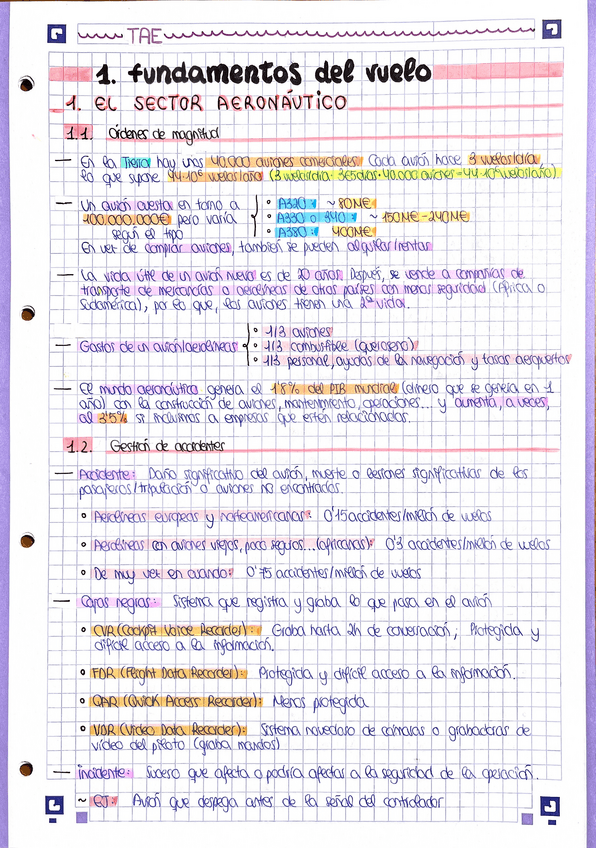 TAE
1. fundamentos del vuelo
1. EL SECTOR AERONÁUTICO
1.1. Órdenes de magnitud
— En la Tierra hay unos 40.000 aviones comerciales. Cada avión hace 3 vuelos/día,
lo que supone 44·10⁶ vuelos/año (3 vuelos/día · 365 días · 40.000 aviones = 44·10⁶ vuelos/año)
— Un avión cuesta en torno a
100.000.000€ pero varía
según el tipo
• A320: ~80M€
• A330 o 340: ~150M€-240M€
• A380: 400M€
En vez de comprar aviones, también se pueden alquilar/rentar
— La vida útil de un avión nuevo es de 20 años. Después, se vende a compañías de
transporte de mercancías o aerolíneas de otros países con menos seguridad (África o
Sudamérica), por lo que, los aviones tienen una 2ª vida.
— Gastos de un avión/aerolíneas
• 1/3 aviones
• 1/3 combustible (queroseno)
• 1/3 personal, ayudas de la navegación y tasas aeropuertos
— El mundo aeronáutico genera el 1'8% del PIB mundial (dinero que se genera en 1
año) con la construcción de aviones, mantenimiento, operaciones... y aumenta, a veces,
al 3'5% si incluimos a empresas que estén relacionadas.
1.2. Gestión de accidentes
— Accidente: Daño significativo del avión, muerte o lesiones significativas de los
pasajeros/tripulación o aviones no encontrados.
• Aerolíneas europeas y norteamericanas: 0'15 accidentes/millón de vuelos
• Aerolíneas con aviones viejos, poco seguros...(africanas): 0'3 accidentes/millón de vuelos
• De muy vez en cuando: 0'75 accidentes/millón de vuelos
— Cajas negras: Sistema que registra y graba lo que pasa en el avión
• CVR (Cockpit Voice Recorder): Graba hasta 2h de conversación; Protegida y
difícil acceso a la información.
• FDR (Flight Data Recorder): Protegida y difícil acceso a la información.
• QAR (Quick Access Recorder): Menos protegida
• VDR (Video Data Recorder): Sistema novedoso de cámaras o grabadoras de
vídeo del piloto (graba mandos)
— Incidente: Suceso que afecta o podría afectar a la seguridad de la operación.
~ EJ: Avión que despega antes de la señal del controlador